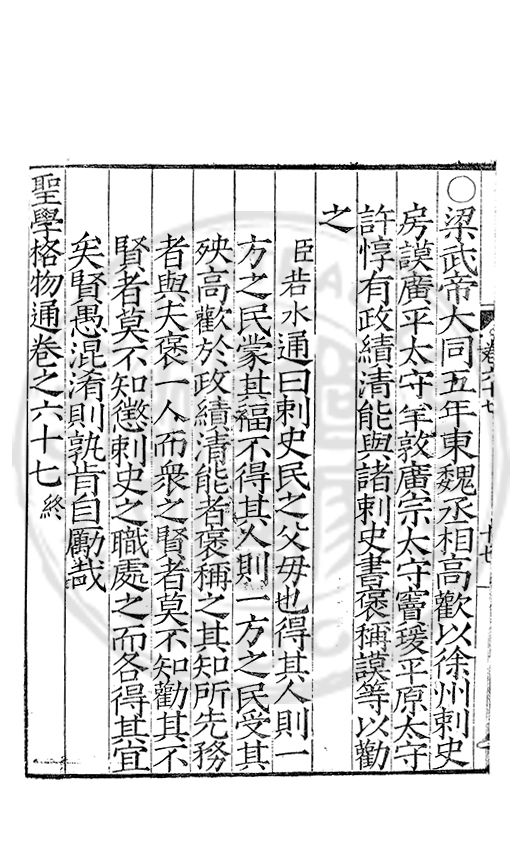 ○梁武帝大同五年東魏丞相高歡以徐州刺史
房謨廣平太守羊敦廣宗太守竇瑗平原太守
許惇有政績清能與諸刺史書褒稱謨等以勸
之
臣若水通曰刺史民之父毋也得其人則一
方之民蒙其福不得其人則一方之民受其
殃高歡於政績清能者褒稱之其知所先務
者與夫褒一人而衆之賢者莫不知勸其不
賢者莫不知懲刺史之職處之而各得其宜
矣賢愚混淆則孰肯自勵哉
聖學格物通卷之六十七 終
卷六十七